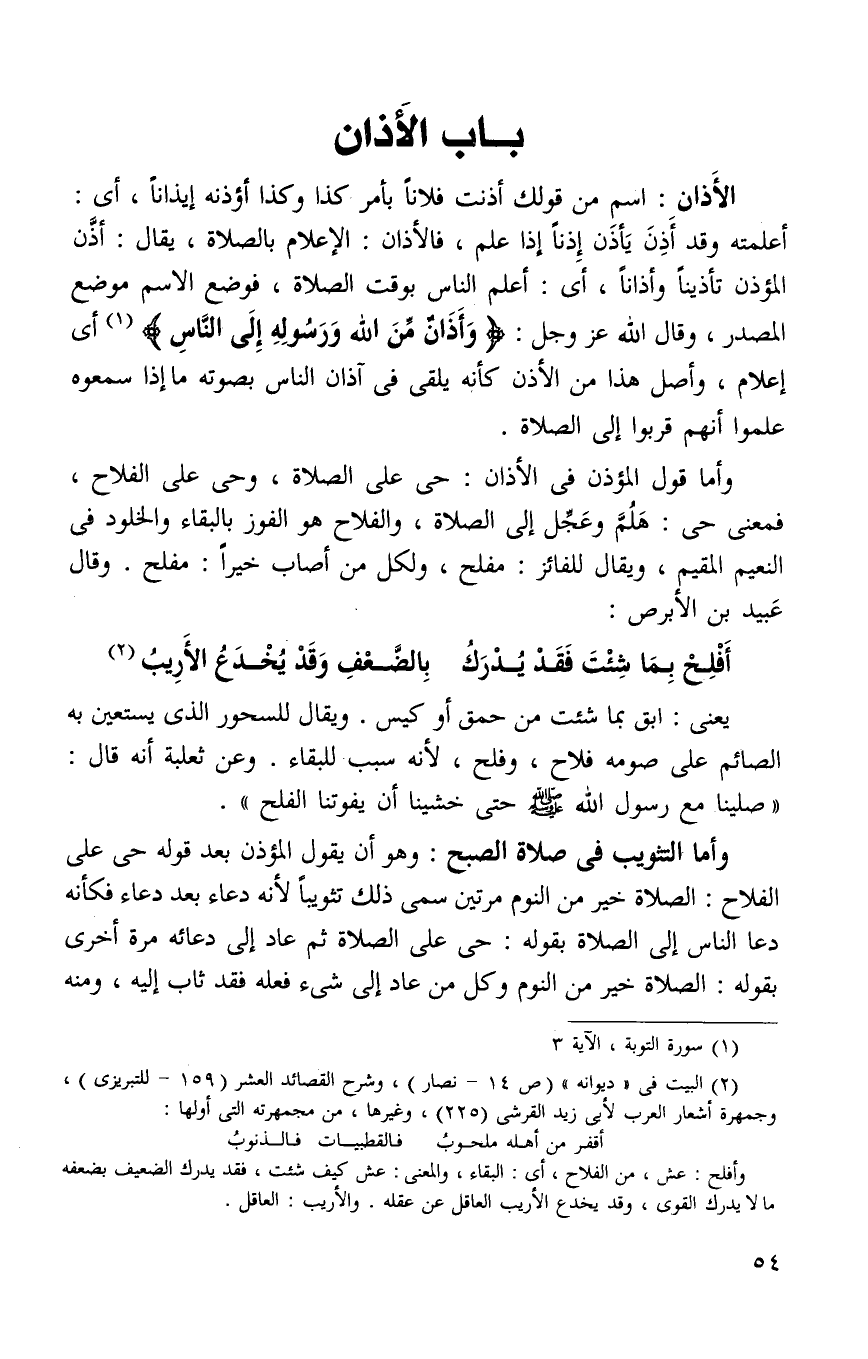 بـاب الأَذان
الأَذان : اسم من قولك أذنت فلاناً بأمر كذا وكذا أؤذنه إيذاناً ، أى :
أعلمته وقد أَذِنَ يَأذَن إذناً إذا علم ، فالأذان : الإعلام بالصلاة ، يقال : أذَّن
المؤذن تأذيناً وأذاناً ، أى : أعلم الناس بوقت الصلاة ، فوضع الاسم موضع
المصدر ، وقال الله عز وجل : ﴿ وَأَذَانٌ مِّنَ الله وَرَسُولِهِ إِلَى النَّاسِ ﴾ (١) أى
إعلام ، وأصل هذا من الأذن كأنه يلقى فى آذان الناس بصوته ما إذا سمعوه
علموا أنهم قربوا إلى الصلاة .
وأما قول المؤذن فى الأذان : حى على الصلاة ، وحى على الفلاح ،
فمعنى حى : هَلُمَّ وعَجِّل إلى الصلاة ، والفلاح هو الفوز بالبقاء والخلود فى
النعيم المقيم ، ويقال للفائز : مفلح ، ولكل من أصاب خيراً : مفلح . وقال
عَبيد بن الأبرص :
أَفْلِـحْ بِـمَا شِئْتَ فَقَـدْ يُـدْرَكُ بِالضَّـعْفِ وَقَدْ يُخْـدَعُ الأَرِيبُ (٢)
يعنى : ابق بما شئت من حمق أو كيس . ويقال للسحور الذى يستعين به
الصائم على صومه فلاح ، وفلح ، لأنه سبب للبقاء . وعن ثعلبة أنه قال :
« صلينا مع رسول الله ﷺ حتى خشينا أن يفوتنا الفلح » .
وأما التثويب فى صلاة الصبح : وهو أن يقول المؤذن بعد قوله حى على
الفلاح : الصلاة خير من النوم مرتين سمى ذلك تثويباً لأنه دعاء بعد دعاء فكأنه
دعا الناس إلى الصلاة بقوله : حى على الصلاة ثم عاد إلى دعائه مرة أخرى
بقوله : الصلاة خير من النوم وكل من عاد إلى شىء فعله فقد ثاب إليه ، ومنه
(١) سورة التوبة ، الآية ٣
(٢) البيت فى « ديوانه » (ص ١٤ – نصار) ، وشرح القصائد العشر (١٥٩ – للتبريزى) ،
وجمهرة أشعار العرب لأبى زيد القرشى (٢٢٥) ، وغيرها ، من مجمهرته التى أولها :
أقفر من أهـله ملحـوبُ فـالقطبيـات فـالـذنوبُ
وأفلح : عش ، من الفلاح ، أى : البقاء ، والمعنى : عش كيف شئت ، فقد يدرك الضعيف بضعفه
ما لا يدرك القوى ، وقد يخدع الأريب العاقل عن عقله . والأريب : العاقل .
٥٤